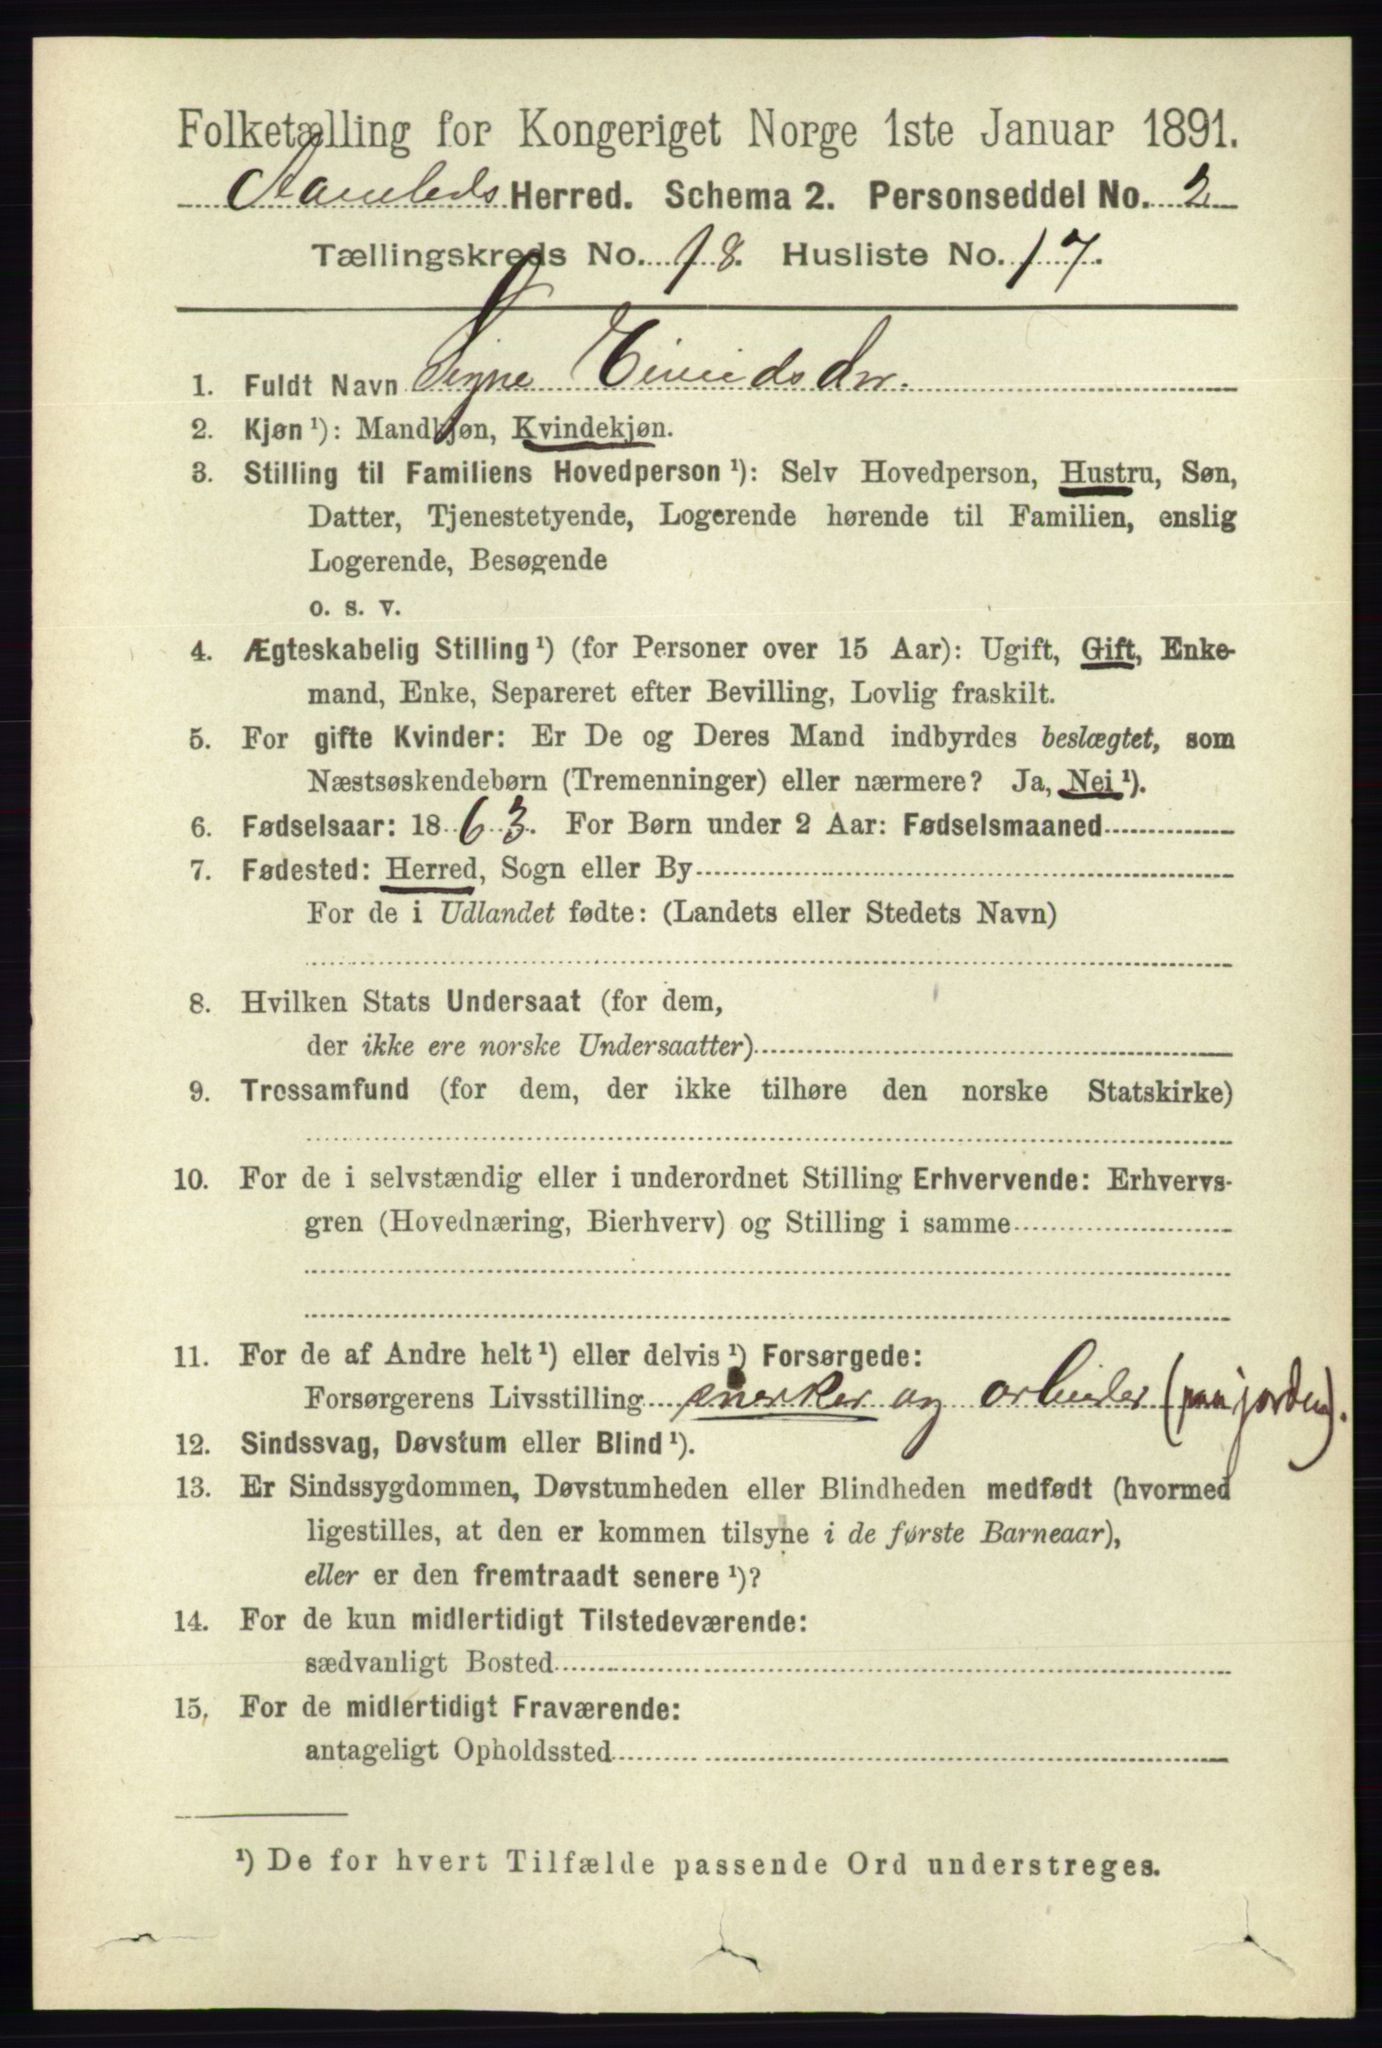 Folketælling for Kongeriget Norge 1ste Januar 1891.
Herred. Schema 2. Personseddel No. 2
Tællingskreds No. 18. Husliste No. 17.
1. Fuldt Navn Signe Eivindsdtr.
2. Kjøn ¹): Mandkjøn, Kvindekjøn.
3. Stilling til Familiens Hovedperson ¹): Selv Hovedperson, Hustru, Søn,
Datter, Tjenestetyende, Logerende hørende til Familien, enslig
Logerende, Besøgende
o. s. v.
4. Ægteskabelig Stilling ¹) (for Personer over 15 Aar): Ugift, Gift, Enke-
mand, Enke, Separeret efter Bevilling, Lovlig fraskilt.
5. For gifte Kvinder: Er De og Deres Mand indbyrdes beslægtet, som
Næstsøskendebørn (Tremenninger) eller nærmere? Ja, Nei ¹).
6. Fødselsaar: 1863. For Børn under 2 Aar: Fødselsmaaned
7. Fødested: Herred, Sogn eller By
For de i Udlandet fødte: (Landets eller Stedets Navn)
8. Hvilken Stats Undersaat (for dem,
der ikke ere norske Undersaatter)
9. Trossamfund (for dem, der ikke tilhøre den norske Statskirke)
10. For de i selvstændig eller i underordnet Stilling Erhvervende: Erhvervs-
gren (Hovednæring, Bierhverv) og Stilling i samme
11. For de af Andre helt ¹) eller delvis ¹) Forsørgede:
Forsørgerens Livsstilling snerker og arbeider (paa jorden).
12. Sindssvag, Døvstum eller Blind ¹).
13. Er Sindssygdommen, Døvstumheden eller Blindheden medfødt (hvormed
ligestilles, at den er kommen tilsyne i de første Barneaar),
eller er den fremtraadt senere ¹)?
14. For de kun midlertidigt Tilstedeværende:
sædvanligt Bosted
15. For de midlertidigt Fraværende:
antageligt Opholdssted
¹) De for hvert Tilfælde passende Ord understreges.